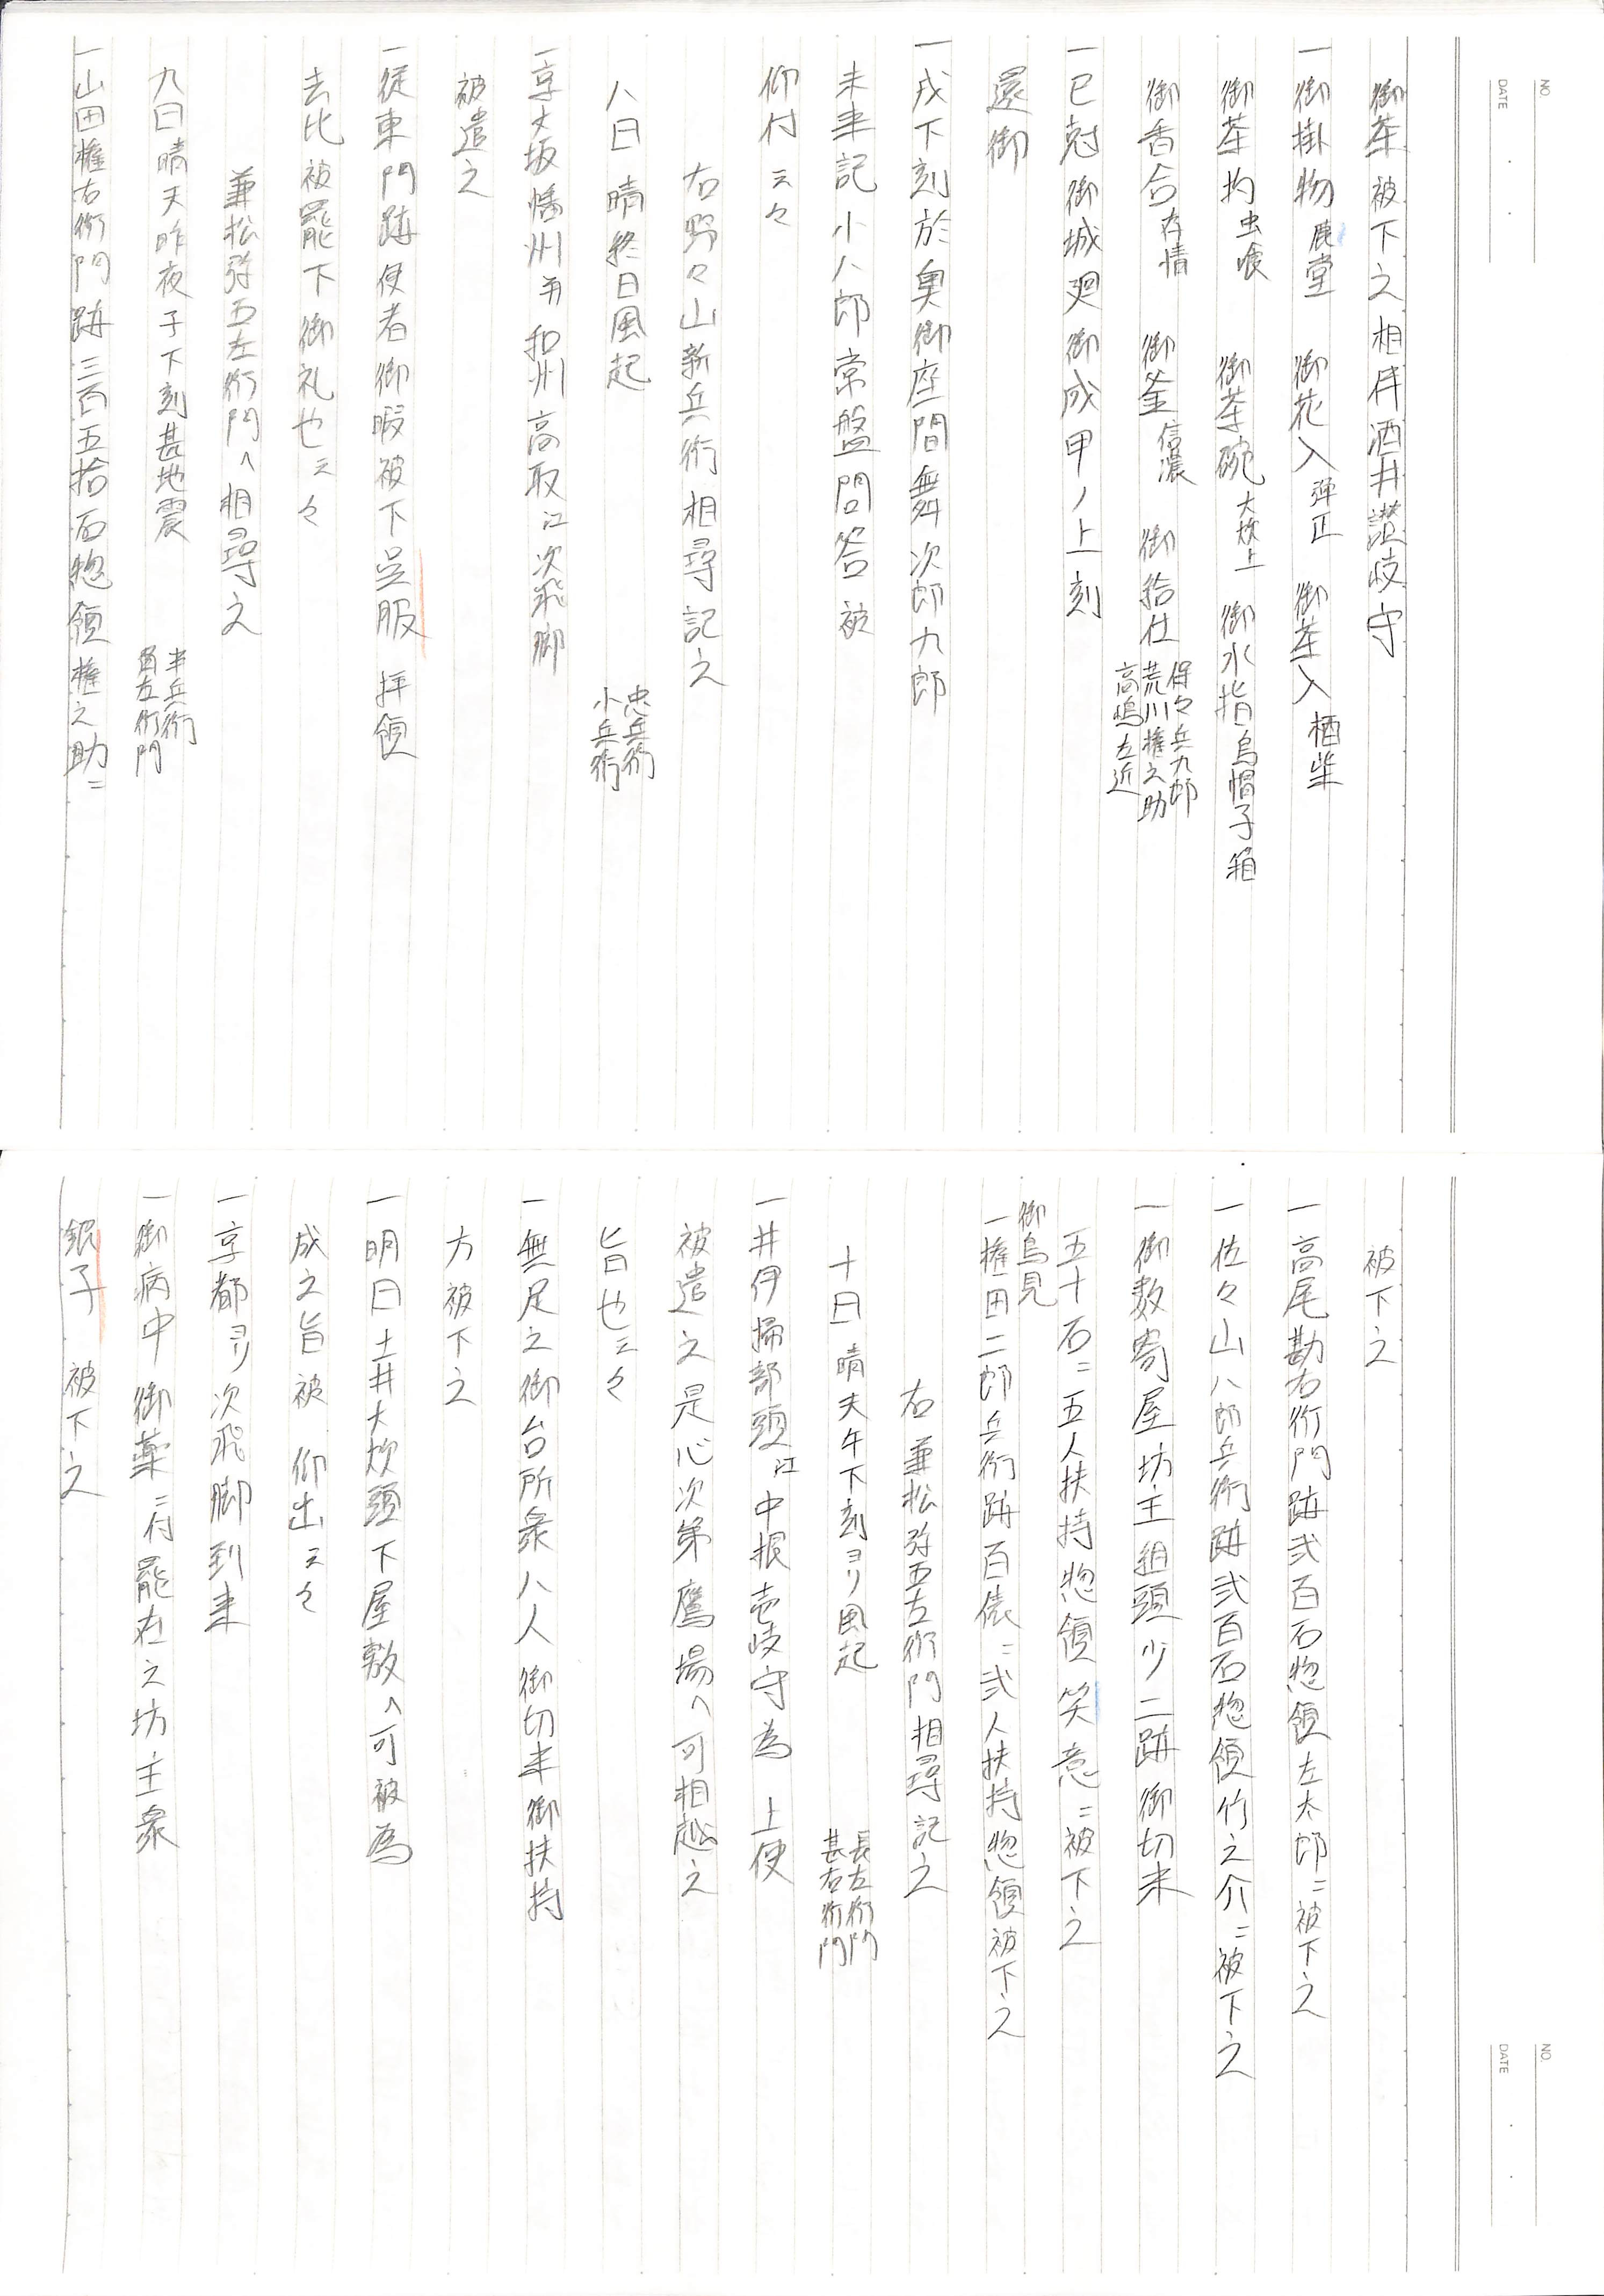 NO.
DATE
御茶被下之相伴酒井讃岐守
一御掛物 虚堂 御花入 弾正 御茶入 栖柴
御茶杓 虫喰 御茶碗 大炊上 御水指 烏帽子箱
御香合 存情 御釜 信濃 御給仕 保々兵九郎 荒川権之助 高嶋左近
一巳尅御城廻御成甲ノ上刻
還御
一戌下刻於奥御座間舞次郎九郎
未来記小八郎常盤問答被
仰付云々
右野々山新兵衛相尋記之
八日晴終日風起 忠兵衛 小兵衛
一京大坂幡州并和州高取江次飛脚
被遣之
一従東門跡使者御暇被下呉服拝領
去比被罷下御礼也云々
兼松弥五左衛門へ相尋之
九日晴天昨夜子下刻甚地震 半兵衛 甚左衛門
一山田権右衛門跡三百五拾石惣領権之助ニ
NO.
DATE
被下之
一高尾勘右衛門跡弐百石惣領左太郎ニ被下之
一佐々山八郎兵衛跡弐百石惣領竹之介ニ被下之
一御数寄屋坊主組頭少二跡御切米
五十石ニ五人扶持惣領笑意ニ被下之
御鳥見
一権田二郎兵衛跡百俵ニ弐人扶持惣領被下之
右兼松弥五左衛門相尋記之
十日晴天午下刻ヨリ風起 長左衛門 甚右衛門
一井伊掃部頭江中根壱岐守為 上使
被遣之是心次第鷹場へ可相越之
旨也云々
一無足之御台所衆八人御切米御扶持
方被下之
一明日土井大炊頭下屋敷へ可被為
成之旨被 仰出云々
一京都ヨリ次飛脚到来
一御病中御薬ニ付罷在之坊主衆
銀子 被下之